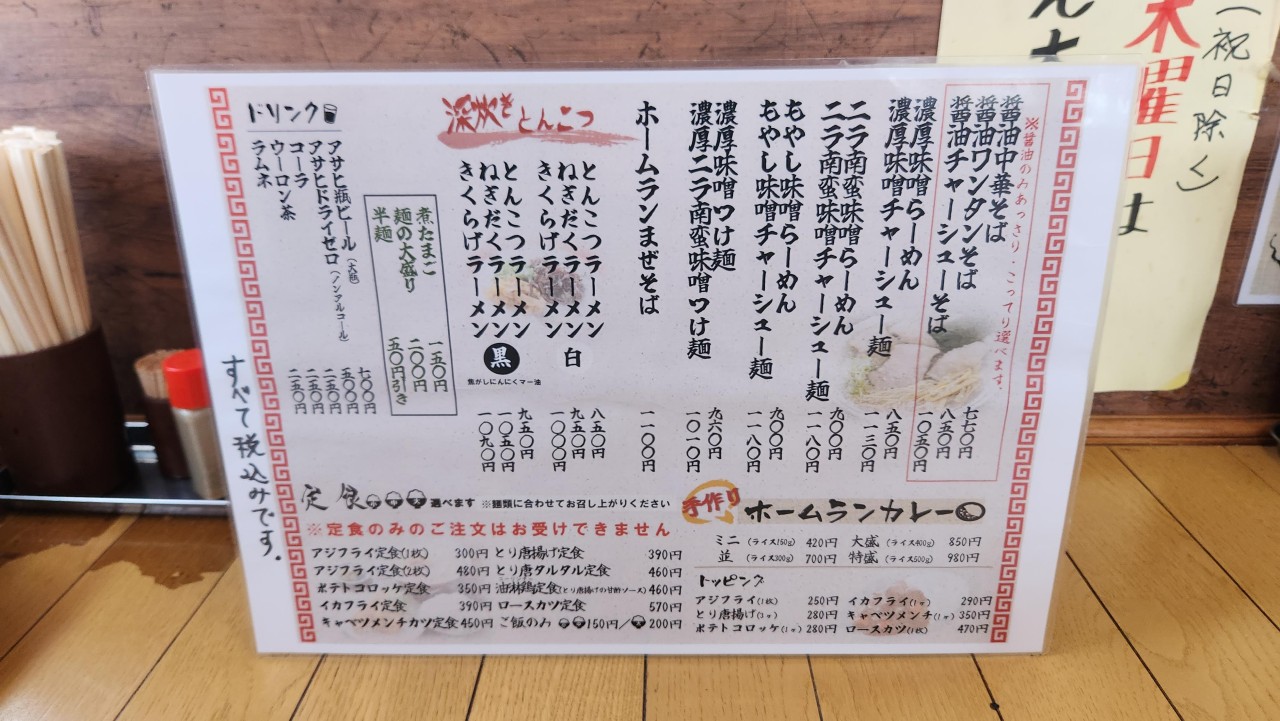 ※醤油のみあっさり、こってり選べます。
醤油中華そば 七七〇円
醤油ワンタンそば 八五〇円
醤油チャーシューそば 一〇五〇円
濃厚味噌らーめん 八五〇円
濃厚味噌チャーシュー麺 一一三〇円
ニラ南蛮味噌らーめん 九〇〇円
ニラ南蛮味噌チャーシュー麺 一一八〇円
もやし味噌らーめん 九〇〇円
もやし味噌チャーシュー麺 一一八〇円
濃厚味噌つけ麺 九六〇円
濃厚ニラ南蛮味噌つけ麺 一〇一〇円
ホームランまぜそば 一一〇〇円
深炊きとんこつ
とんこつラーメン 八五〇円
ねぎだくラーメン 九五〇円
きくらげラーメン 一〇〇〇円
白
とんこつラーメン 九五〇円
ねぎだくラーメン 一〇五〇円
きくらげラーメン 一〇九〇円
黒
焦がしにんにくマー油
煮たまご 一五〇円
麺の大盛り 二〇〇円
半麺 五〇円引き
ドリンク
アサヒ瓶ビール(大瓶) 七〇〇円
アサヒドライゼロ(ノンアルコール) 五〇〇円
コーラ 二五〇円
ウーロン茶 二五〇円
ラムネ 二五〇円
すべて税込みです.
定食 小 中 大 選べます ※麺類に合わせてお召し上がりください
※定食のみのご注文はお受けできません
アジフライ定食(1枚) 300円
アジフライ定食(2枚) 480円
ポテトコロッケ定食 350円
イカフライ定食 390円
キャベツメンチカツ定食 450円
とり唐揚げ定食 390円
とり唐タルタル定食 460円
油淋鶏定食(とり唐揚げの甘酢ソース) 460円
ロースカツ定食 570円
ご飯のみ 小中150円/大200円
手作り ホームランカレー
ミニ (ライス150g) 420円 大盛 (ライス400g) 850円
並 (ライス300g) 700円 特盛 (ライス500g) 980円
トッピング
アジフライ(1枚) 250円 イカフライ(1ケ) 290円
とり唐揚げ(1ケ) 280円 キャベツメンチ(1ケ) 350円
ポテトコロッケ(1ケ) 280円 ロースカツ(1枚) 470円
(祝日除く)
木曜日は